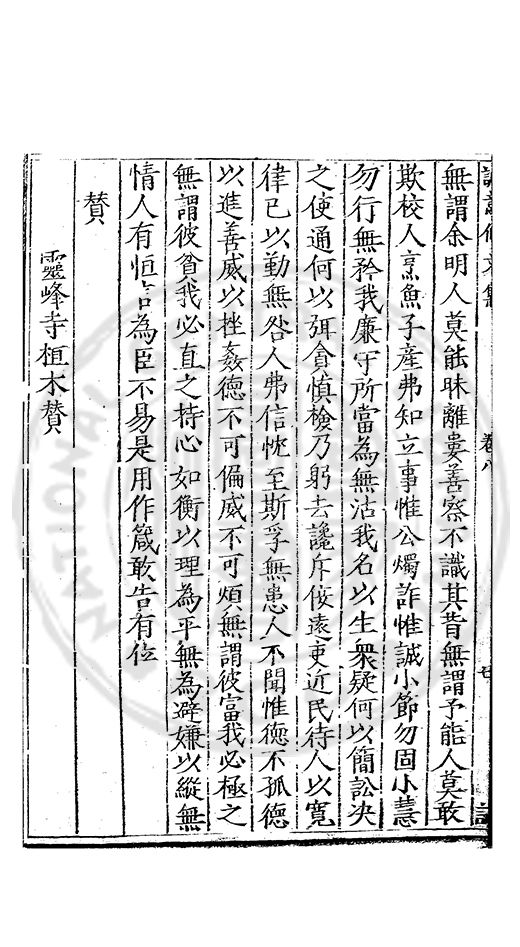 無謂余明人莫能昧離婁善察不識其眥無謂予能人莫敢
欺校人烹魚子產弗知立事惟公燭詐惟誠小節勿固小慧
勿行無矜我廉守所當為無沽我名以生衆疑何以簡訟决
之使通何以弭貪慎檢乃躬去讒斥佞遠吏近民待人以寬
律已以勤無咎人弗信忱至斯孚無患人不聞惟德不孤德
以進善威以挫姦德不可偏威不可煩無謂彼富我必極之
無謂彼貧我必直之持心如衡以理為平無為避嫌以縱無
情人有恒言為臣不易是用作箴敢告有位
賛
靈峰寺植木賛
卷八